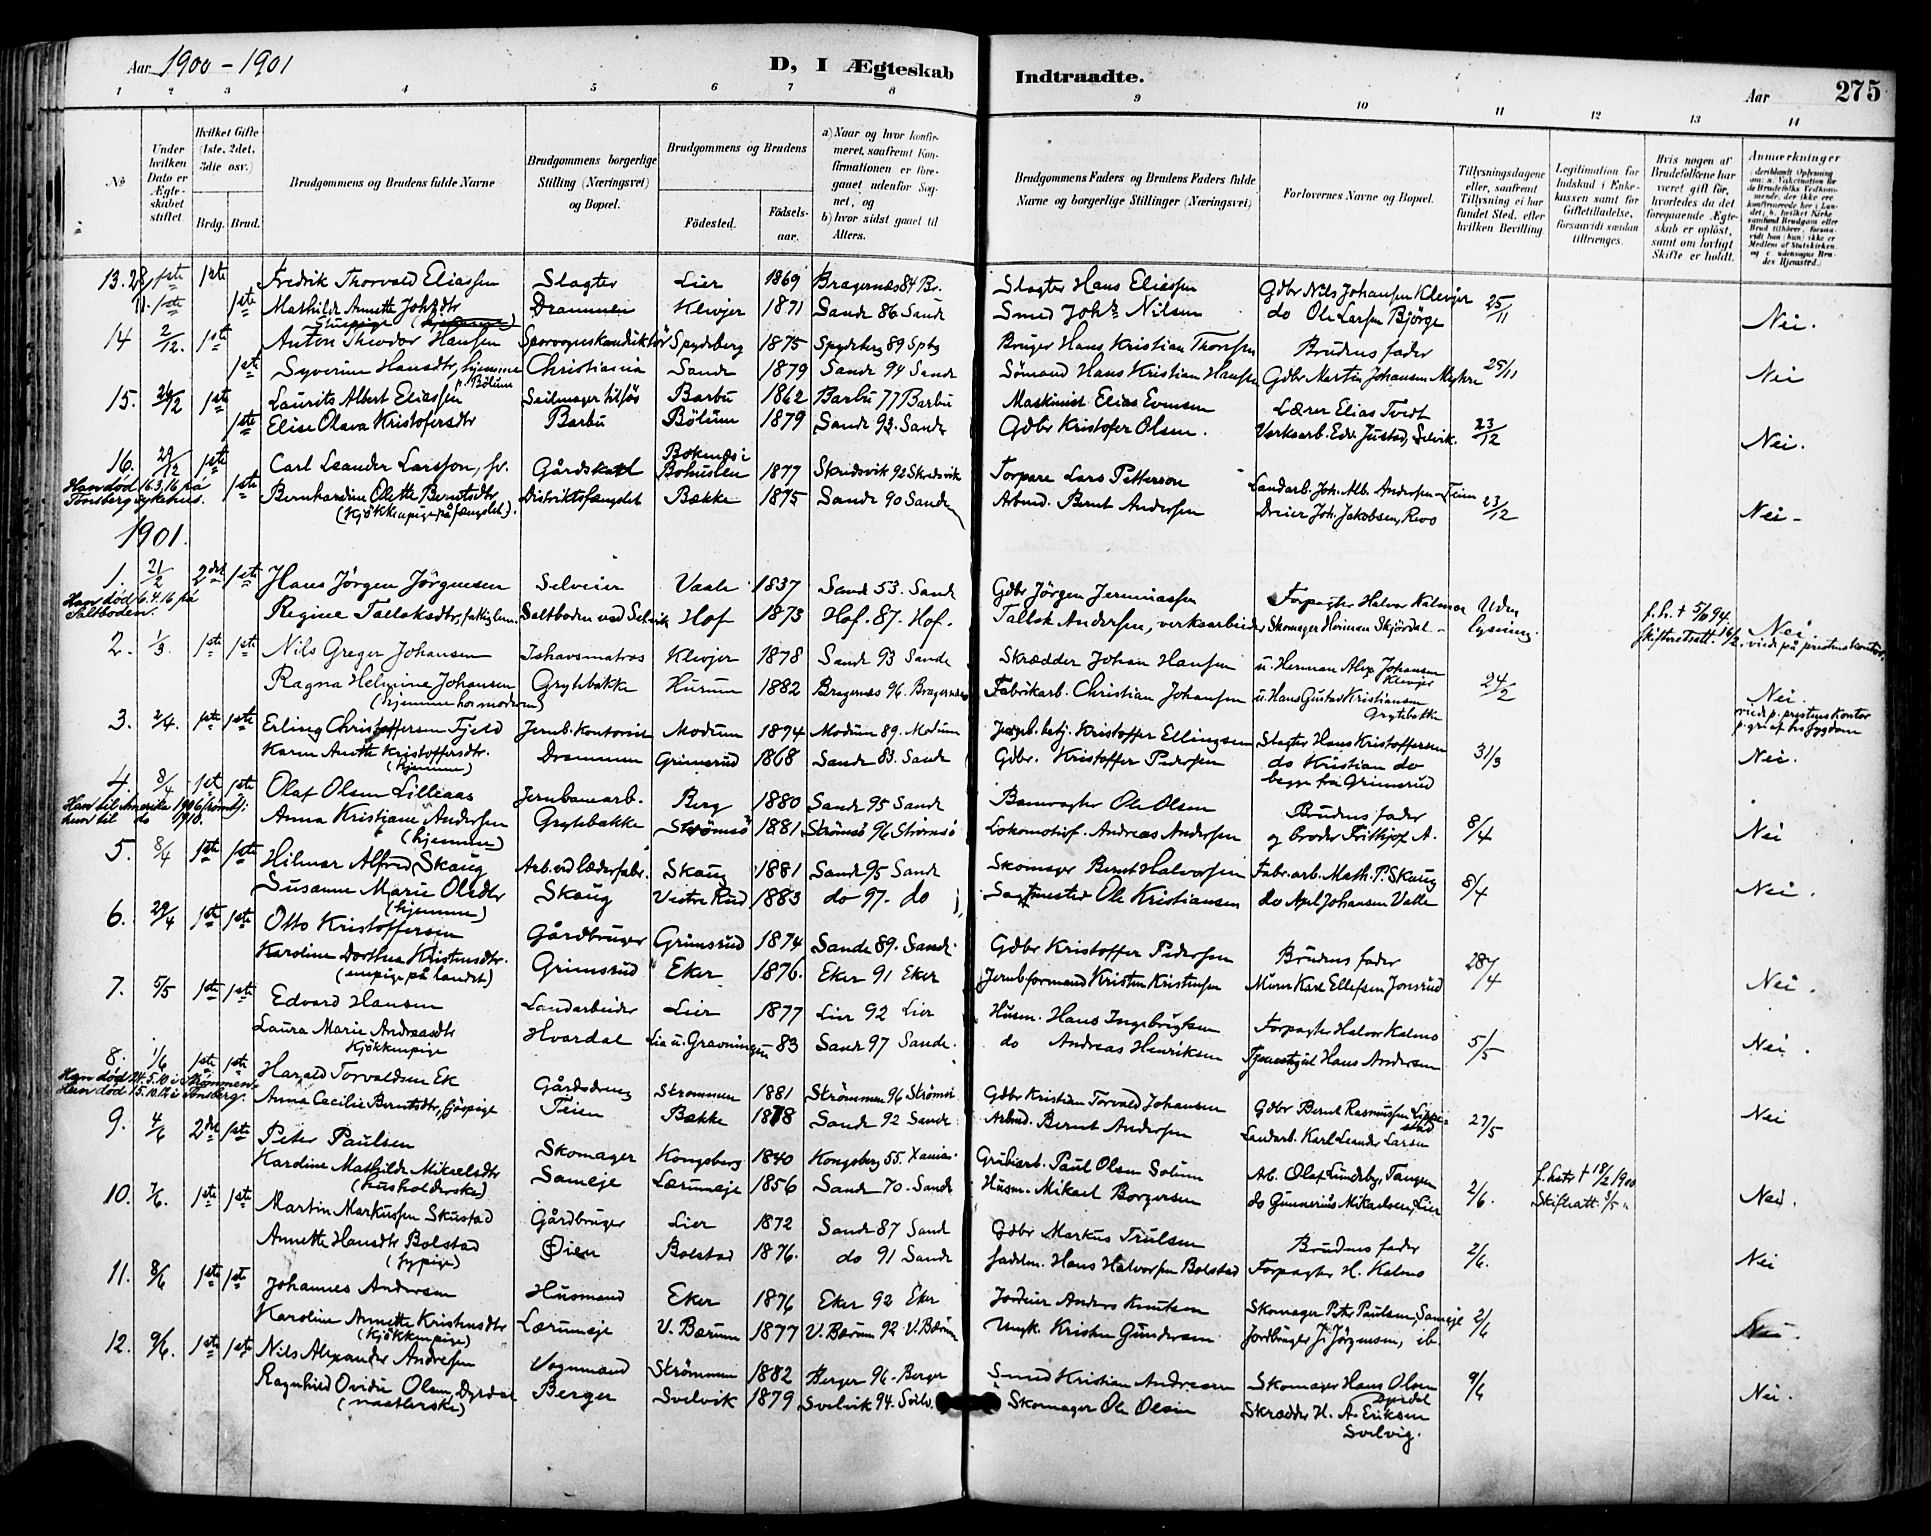 Aar 1900-1901
D, I Ægteskab Indtraadte.
Aar 275
1 2 3 4 5 6 7 8 9 10 11 12 13 14
No
Under hvilken Dato er Ægteskabet stiftet.
Hvilket Gifte (1ste, 2det, 3die osv.)
Brdg. Brud.
Brudgommens og Brudens fulde Navne
Brudgommens borgerlige Stilling (Næringsvei) og Bopæl.
Brudgommens og Brudens
Födested.
Födsels-aar.
a) Naar og hvor konfirmeret, saafremt Konfirmationen er foregaaet udenfor Sognet, og
b) hvor sidst gaaet til Alters.
Brudgommens Faders og Brudens Faders fulde Navne og borgerlige Stillinger (Næringsvei)
Forlovernes Navne og Bopæl.
Tillysningsdagene eller, saafremt Tillysning ei har fundet Sted, efter hvilken Bevilling
Legitimation for Indskud i Enkekassen samt for Giftetilladelse, forsaavidt saadan tiltrænges.
Hvis nogen af Brudefolkene har været gift før, hvorledes da det foregaaende Ægteskab er oplöst, samt om lovligt Skifte er holdt.
Anmærkninger
13. 1ste Fredrik Thorvald Eliassen Slagter Lier 1869 Bragernæs 84 Br. Slagter Hans Eliessen Gdbr Nils Johansen Klevjer 25/11
1ste Mathilde Annette Johsdtr Drammen Klevjer 1871 Sande 86 Sande Smed Johs Nilsen do Ole Larsen Bjørge Nei.
14 2/12. 1ste Anton Theodor Hansen Sporvognskonduktör Spydeberg 1875 Spydeberg 89 Spbg Bruger Hans Kristian Thorsen Brudens fader
1ste Syverine Hansdtr, hjemme Christiania Sande 1879 Sande 94 Sande Sømand Hans Kristian Hansen Gdbr Martin Johansen 25/11 Nei
p. Bölum
15. 26/12 1ste Laurits Albert Eliassen Seilmager tilsjøs Barbu 1862 Barbu 77 Barbu Maskinist Elias Evensen Lærer Elias Tvedt
1ste Elise Olava Kristofersdtr Barbu Bölum 1879 Sande 93. Sande Gdbr Kristofer Olsen. Verksarb. Edv. Justad, Selvik. 23/12 Nei.
16. 29/12 1ste Carl Leander Larsson, sv. Gårdskarl Bokenäs i Bohuslen 1877 Skredsvik 92 Skredsvik Torpare Lars Petterson Landarb. Joh. Alb. Andersen Teien
Han död 16.3.16 på Tönsberg sykehus.
1ste Bernhardine Olette Berntsdtr Distriktsfængslet Bække 1875 Sande 90 Sande Arbmd. Bernt Andersen Dreier Joh. Jakobsen, Revo 23/12 Nei-
(kjökkenpige på fængslet).
1901.
1. 21/2 2det 1ste Hans Jörgen Jörgensen Selveier Vaale 1837 Sand 53. Sand Gdbr Jörgen Jeremiassen Forpagter Halvor Kalmoe Uden
Han död 6.4.16 på Saltboden.
Regine Tallaksdtr, fattiglem. Saltboden ved Selvik Hof 1873 Hof. 87. Hof. Tallak Andersen, verksarbeider Skomager Herman Skjördal lysning. f.h. † 5/6 94. Nei
Skifteattest. viede på prestens kontor.
2. 1/3. 1ste 1ste Nils Greger Johansen Ishavsmatros Klevjer 1878 Sande 93 Sande Skrædder Johan Hansen u. Herman Alex Johansen Klevjer
Ragna Helmine Johansen Grytebakke Hurum 1882 Bragernæs 96. Bragernæs Fabrikarb. Christian Johansen u. Hans Gustav Kristiansen Grytebakke 24/2 Nei.
(hjemme hos moderen)
viede p. prestens kontor p. gr. af hs sygdom
3. 2/4. 1ste 1ste Erling Christoffersen Fjeld Jernb. Kontorist Modum 1874 Modum 89. Modum Jernb. betj. Kristoffer Ellingsen Slagter Hans Kristoffersen
Karen Anette Kristoffersdtr. Drammen Grimsrud 1868 Sande 83. Sande Gdbr. Kristoffer Pedersen do Kristian do 31/3 Nei.
(hjemme) begge fra Grimsrud
4. 8/4 1ste 1ste Olaf Olsen Lilleaas Jernbanearb. Berg 1880 Sande 95 Sande Banevogter Ole Olsen Brudens fader
Han til Amerika 1906
hun til do 1910.
Anna Kristiane Andersen Grytebakke Strømsö 1881 Strømsö 96 Strømsö Lokomotivf. Andreas Andersen og broder Frithjof A. 8/4 Nei
(hjemme)
5. 8/4 1ste 1ste Hilmar Alfred Skaug Arb. ved læderfabr. Skaug 1881 Sande 95 Sande Skomager Bernt Halvorsen Fabr. arb. Math. P. Skaug
Susanne Marie Olsdtr Skaug Vestre Rud 1883 do 97. do Sagmester Ole Kristiansen do Axel Johansen Valle 8/4 Nei.
(hjemme)
6. 29/4 1ste 1ste Otto Kristoffersen Gårdbruger Grimsrud 1874 Sande 89. Sande Gdbr Kristoffer Pedersen Brudens fader
Karoline Dorthea Kristensdtr. Grimsrud Eker 1876. Eker 91 Eker Jernb. formand Kristen Kristensen Murer Karl Ellefsen Jonsrud 28/4 Nei.
7. 5/5 1ste 1ste Edvard Hansen Landarbeider Lier 1877 Lier 92 Lier Husm. Hans Ingebrigtsen Forpagter Halvor Kalmo
Laura Marie Andreasdtr Hvardal Lia u. Gravningen 83 Sande 97 Sande. do Andreas Henriksen Tjenestgut Hans Andersen 5/5 Nei.
Kjökkenpige
8. 1/6 1ste 1ste Harald Torvaldsen Ek Gårdsdreng Strømmen 1881 Strömmen 96 Strömm. Gdbr Kristian Torvald Johansen Gdbr Bernt Rasmussen
Han död 24.5.10 i Strømmen.
Anna Cecilie Berntsdtr, Gåspige Teien Bække 1878 Sande 92 Sande Arbmd. Bernt Andersen Landarb. Karl Leander Larsen 27/5 Nei
9. 4/6 2det 1ste Peter Paulsen Skomager Kongsberg 1840 Kongsberg 55. Xania. Grubearb. Paul Olsen Solum Arb. Olaf Lundeby, Tangen f. hstr † 18/2 1900
Karoline Mathilde Mikaelsdtr Sameje Lærumeje 1856 Sande 70. Sande Husm. Mikael Borgersen do Gunnerius Mikaelsen, Lier 2/6. Skifteatt. 3/5 Nei.
(husholderske)
10. 7/6. 1ste 1ste Martin Markussen Skustad Gårdbruger Lier 1872 Sande 87 Sand Gdbr Markus Trulsen Brudens fader
Annette Hansdtr Bolstad Øien Bolstad 1876. do 91 Sande Hans Halvorsen Bolstad Forpagter H. Kalmo 2/6. Nei
11. 8/6 1ste 1ste Johannes Andersen Husmand Eker 1876 Eker 92 Eker Jordeier Anders Knutsen Skomager Peter Paulsen, Sameje
Karoline Annette Kristensdtr Lærumeje V. Bærum 1877 V. Bærum 92. V. Bærum Ungk. Kristen Gundersen Jordbruger J. Jörgensen, ib 2/6 Nei.
(kjökkenpige)
12. 9/6. 1ste 1ste Nils Alexander Andresen Vognmand Strömmen 1882 Berger 96. Berger Smed Kristian Andresen Skomager Hans Olsen Dyrdal
Ragnhild Ovidie Olsen, Dyrdal Berger Svelvik 1879 Svelvik 94. Svelv. Skomager Ole Olsen Skrædder H. A. Eriksen Svelvig. 9/6 Nei.